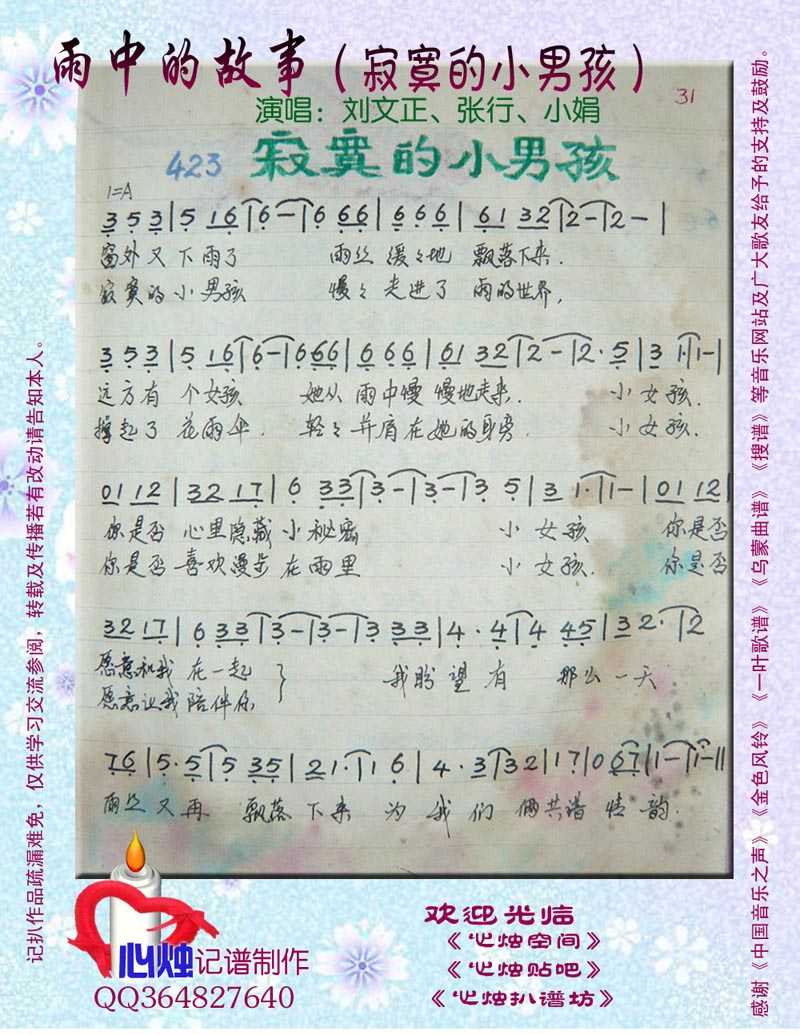 雨中的故事（寂寞的小男孩）
演唱：刘文正、张行、小娟
31
423 寂寞的小男孩
1=A
3 5 3 | 5 16 | 6 - | 6 66 | 6 66 | 61 32 | 2 - | 2 - |
窗外又下雨了 雨丝缓々地 飘落下来.
寂寞的小男孩 慢々走进了 雨的世界,
3 5 3 | 5 16 | 6 - | 6 66 | 6 66 | 61 32 | 2 - | 2 · 5 | 3 1· | 1 - |
远方有 个女孩 她从 雨中慢 慢地走来. 小女孩.
撑起了 花雨伞. 轻々并肩在她的身旁 小女孩.
01 12 | 32 17 | 6 33 | 3 - | 3 - | 3 5 | 3 1· | 1 - | 01 12 |
你是否 心里隐藏小秘密 小女孩 你是否
你是否 喜欢漫步在雨里 小女孩. 你是否
32 17 | 6 33 | 3 - | 3 - | 3 33 | 4 · 4 | 4 45 | 3 2· | 2
愿意和我 在一起 } 我盼望有 那么一天
愿意让我陪伴你
76 | 5· 5 | 5 35 | 21· | 1 6 | 4 · 3 | 32 | 17 | 0 67 | 1 - | 1 - ||
雨丝又再 飘落下来 为我们 俩共谱情韵.
记扒作品疏漏难免，仅供学习交流参阅，转载及传播若有改动请告知本人。
感谢《中国音乐之声》《金色风铃》《一叶歌谱》《乌蒙曲谱》《搜谱》等音乐网站及广大歌友给予的支持及鼓励。
心烛记谱制作
QQ364827640
欢迎光临
《心烛空间》
《心烛贴吧》
《心烛扒谱坊》